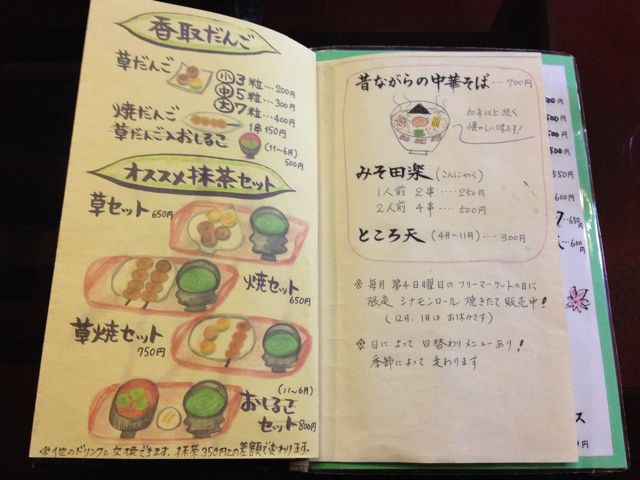 香取だんご
草だんご
小 3粒…200円
中 5粒…300円
大 7粒…400円
焼だんご
1串150円
草だんご入おしるこ
(11～6月)
500円
オススメ抹茶セット
草セット 650円
焼セット
650円
草焼セット
750円
(11～6月)
おしるこ
セット 800円
※他のドリンクと交換できます。抹茶350円との差額で変わります。
昔ながらの中華そば…700円
50年以上続く
懐かしい味です!
みそ田楽(こんにゃく)
1人前 2串……250円
2人前 4串……500円
ところ天(4月～11月)…300円
※毎月 第4日曜日の フリーマーケットの日に
限定 シナモンロール 焼きたて 販売中!
(12月、1月は お休みです)
※日によって 日替わり メニューあり!
季節によって 変わります